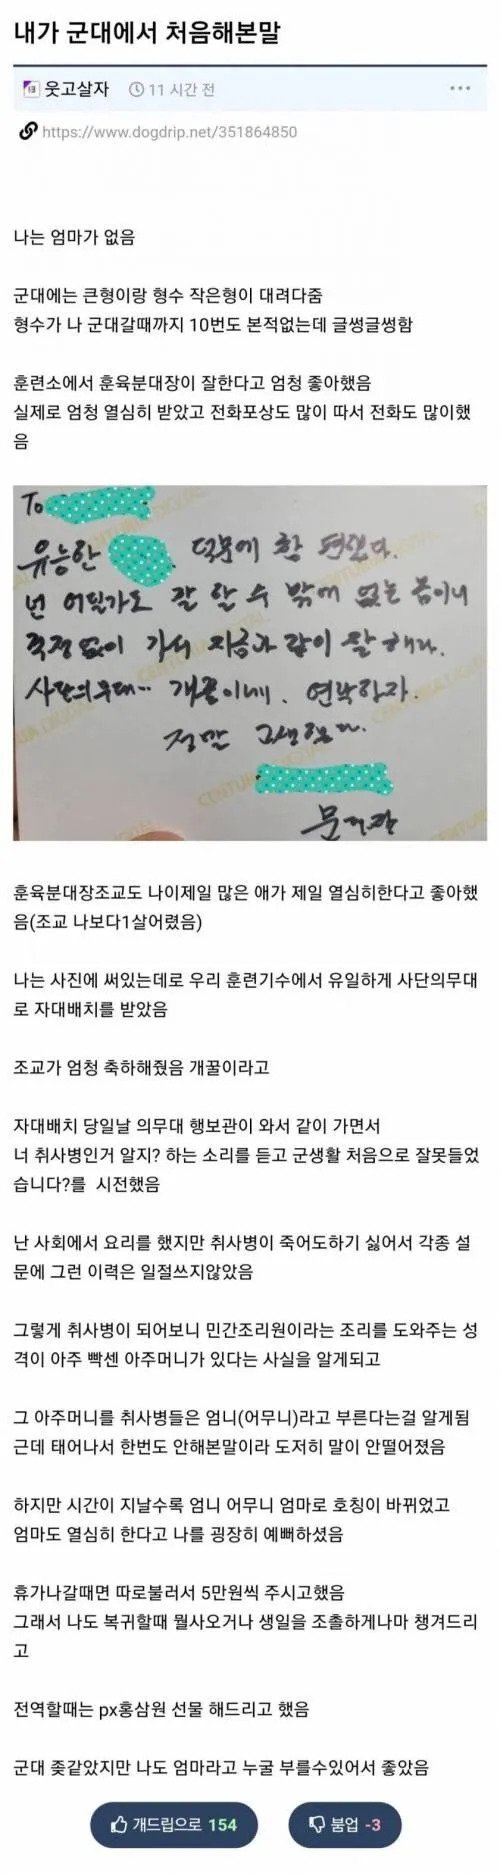 내가 군대에서 처음해본말
웃고살자
11 시간 전
https://www.dogdrip.net/351864850
나는 엄마가 없음
군대에는 큰형이랑 형수 작은형이 대려다줌
형수가 나 군대갈때까지 10번도 본적없는데 글썽글썽함
훈련소에서 훈육분대장이 잘한다고 엄청 좋아했음
실제로 엄청 열심히 받았고 전화포상도 많이 따서 전화도 많이했
음
To
유능한 덕분에 참 편했다.
넌 어딜가도 잘 할 수 밖에 없는 놈이니
걱정 없이 가서 지금과 같이 잘 해라.
사단의무대.. 개꿀이네. 연락하자.
정말 고생했다.
CENTURIA DIGITAL
훈육분대장조교도 나이제일 많은 애가 제일 열심히한다고 좋아했
음(조교 나보다1살어렸음)
나는 사진에 써있는데로 우리 훈련기수에서 유일하게 사단의무대
로 자대배치를 받았음
조교가 엄청 축하해줬음 개꿀이라고
자대배치 당일날 의무대 행보관이 와서 같이 가면서
너 취사병인거 알지? 하는 소리를 듣고 군생활 처음으로 잘못들었
습니다?를 시전했음
난 사회에서 요리를 했지만 취사병이 죽어도하기 싫어서 각종 설
문에 그런 이력은 일절쓰지않았음
그렇게 취사병이 되어보니 민간조리원이라는 조리를 도와주는 성
격이 아주 빡센 아주머니가 있다는 사실을 알게되고
그 아주머니를 취사병들은 엄니(어무니)라고 부른다는걸 알게됨
근데 태어나서 한번도 안해본말이라 도저히 말이 안떨어졌음
하지만 시간이 지날수록 엄니 어무니 엄마로 호칭이 바뀌었고
엄마도 열심히 한다고 나를 굉장히 예뻐하셨음
휴가나갈때면 따로불러서 5만원씩 주시고했음
그래서 나도 복귀할때 뭘사오거나 생일을 조촐하게나마 챙겨드리
고
전역할때는 px홍삼원 선물 해드리고 했음
군대 좆같았지만 나도 엄마라고 누굴 부를수있어서 좋았음
개드립으로 154
붐업 -3